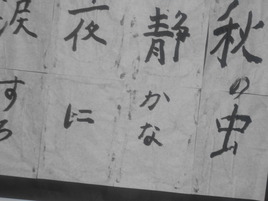 秋の虫
静かな
夜に
涙する